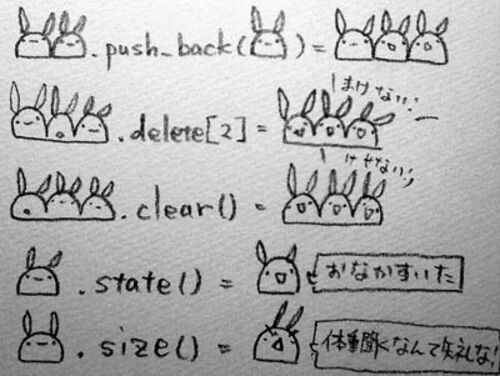 .push_back( ) =
まけない!
.delete[2] =
けせない!
.clear() =
.state() = おなかすいた
.size() = 体重聞くなんて失礼な!